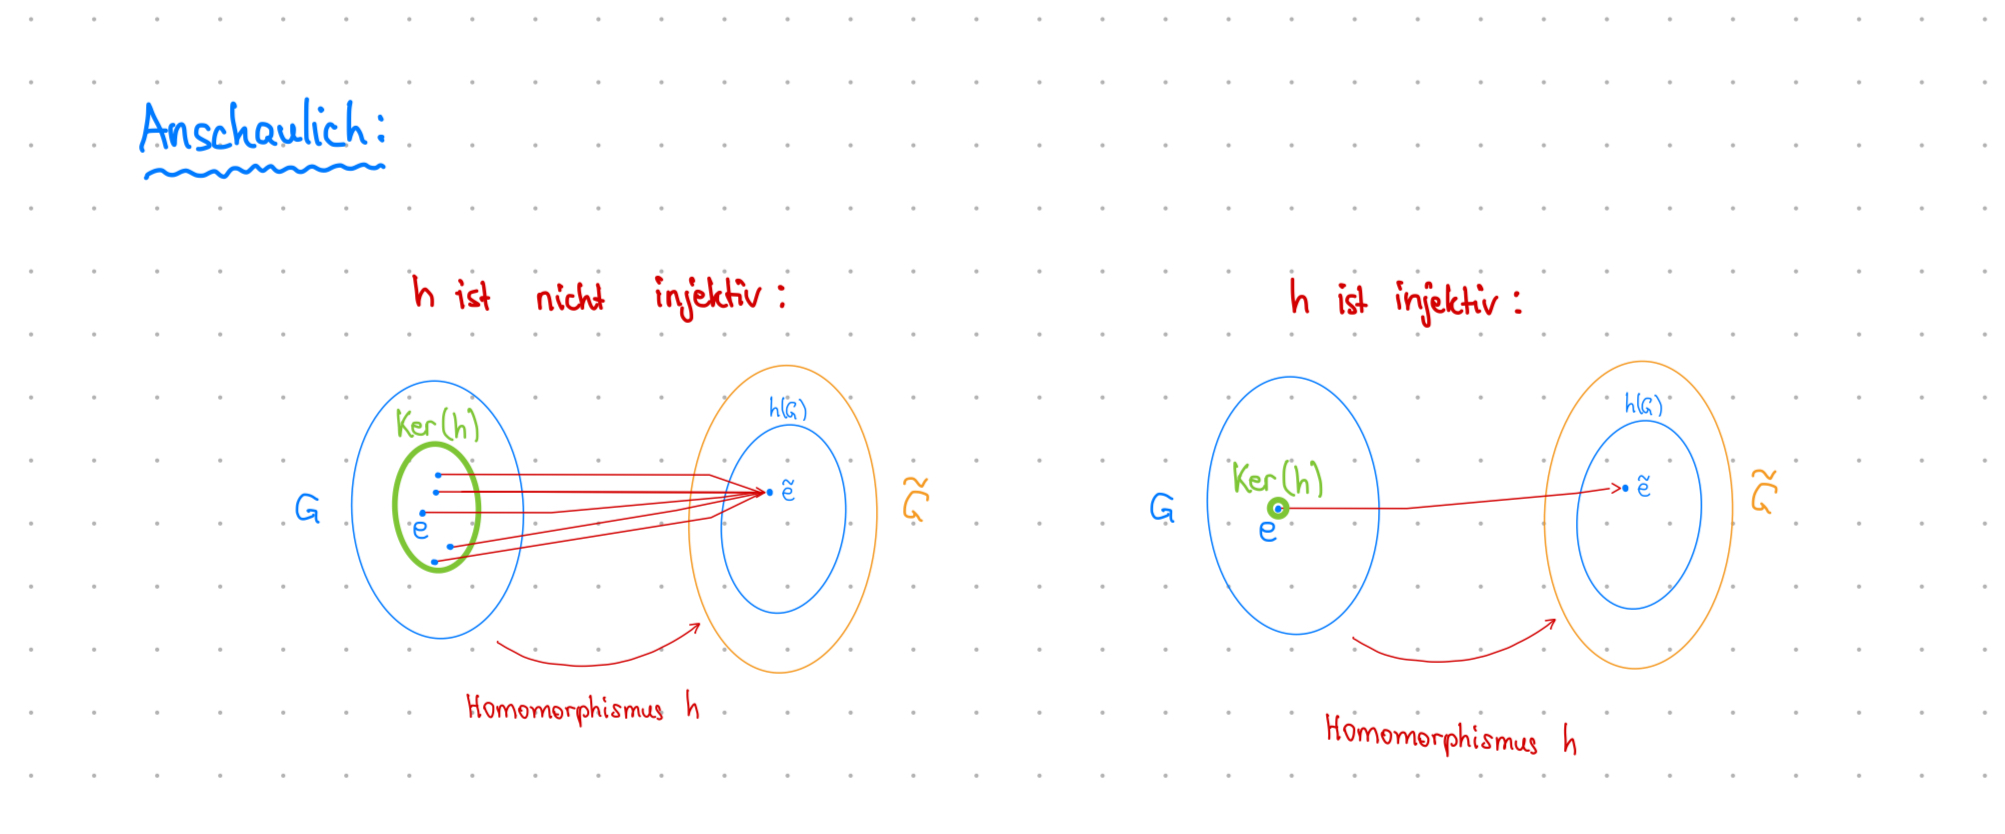 Anschaulich:
h ist nicht injektiv:
Ker(h)
e
G
h(G)
ẽ
G̃
Homomorphismus h
h ist injektiv:
Ker(h)
e
G
h(G)
ẽ
G̃
Homomorphismus h